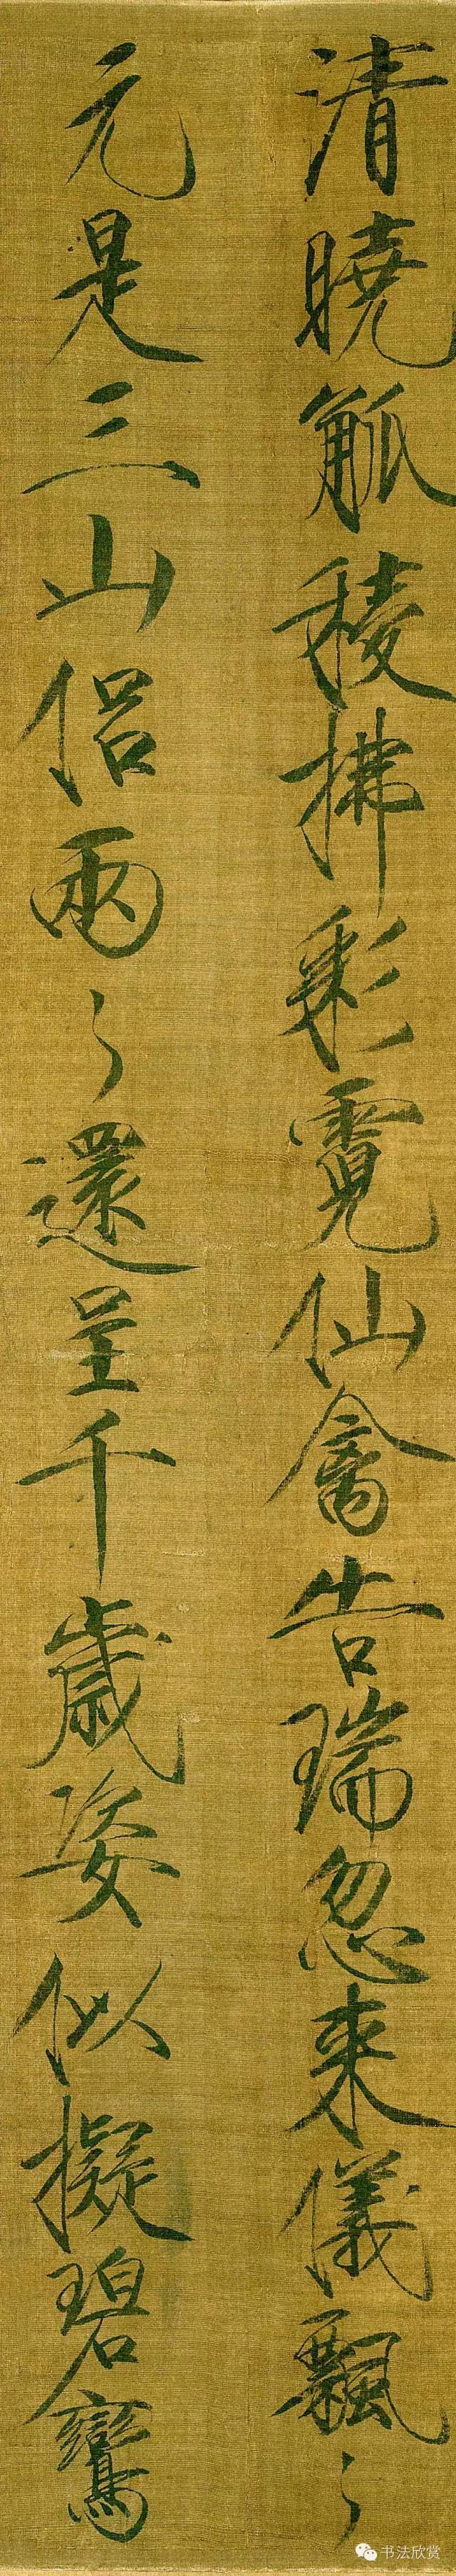 清曉觚稜拂彩霓仙禽告瑞忽来儀飄〻
元是三山侣兩〻還呈千歲姿似擬碧鸞
书法欣赏